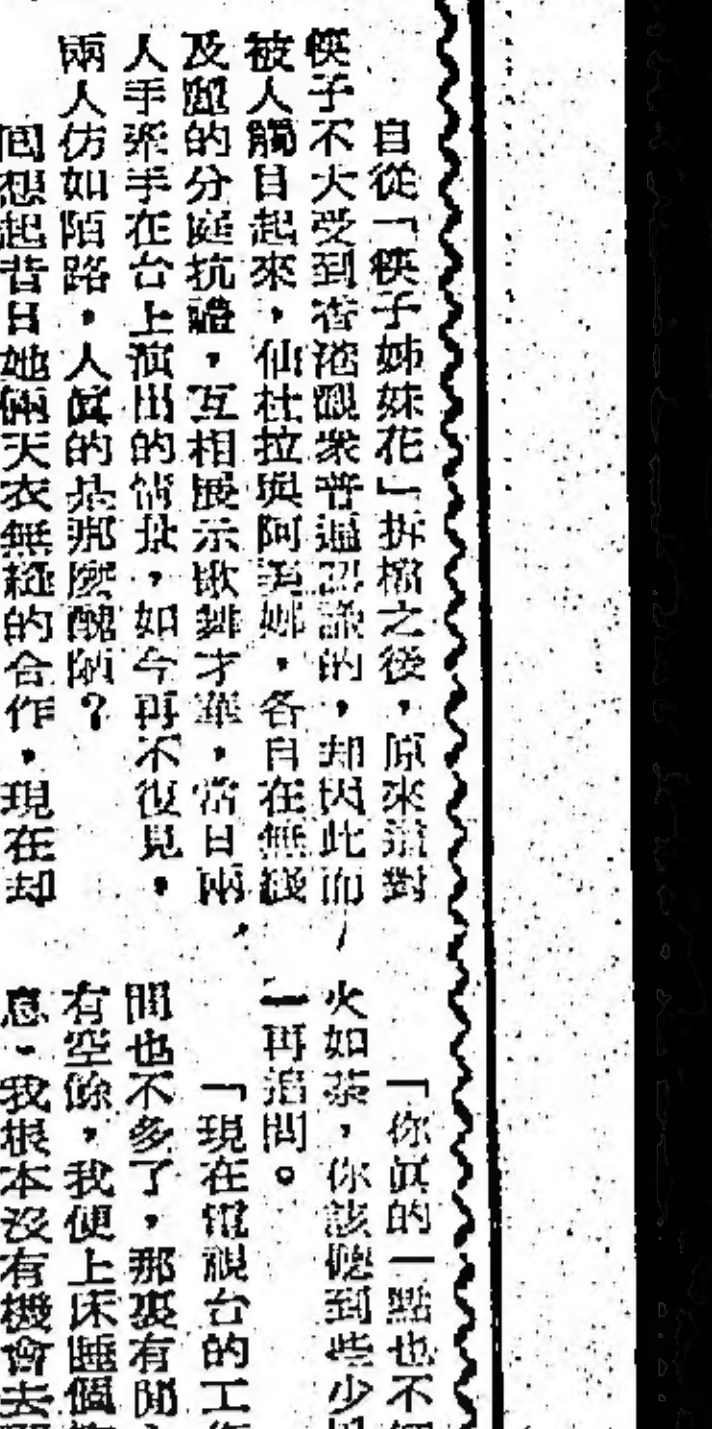 自從「筷子姊妹花」拆檔之後，原來這對
筷子不大受到香港觀衆普遍認識的，却因此而
被人觸目起來，仙杜拉與阿美娜，各自在無綫
及麗的分庭抗禮，互相展示歌舞才華，當日兩
人手牽手在台上演出的情景，如今再不復見，
兩人仿如陌路，人眞的是那麼醜陋？
回想起昔日她倆天衣無縫的合作，現在却
「你眞的一點也不
火如荼，你該聽到些少
一再追問。
「現在電視台的工
間也不多了，那裏有閒
有空餘，我便上床睡個
息，我根本沒有機會去